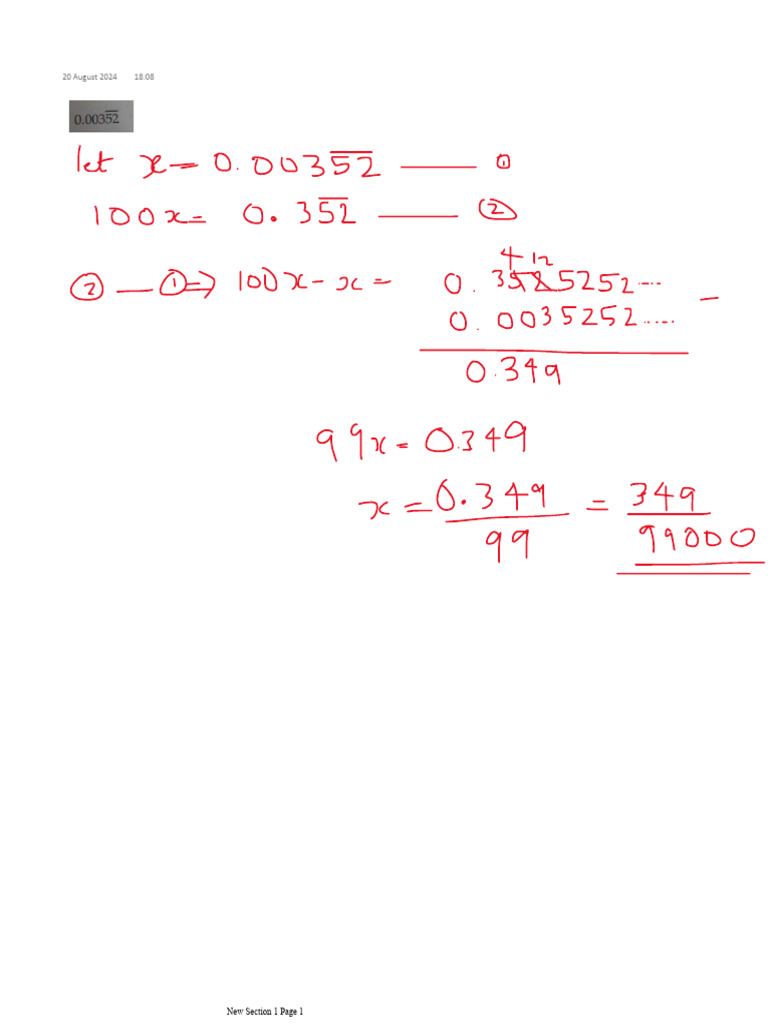 20 August 2024 18:08
0.0035̅2̅
let x = 0.0035̅2̅ —— ①
100x = 0.35̅2̅ —— ②
4 12
② — ① ⇒ 100x - x = 0.3525252....
0.0035252..... -
0.349
99x = 0.349
x = 0.349/99 = 349/99000
New Section 1 Page 1